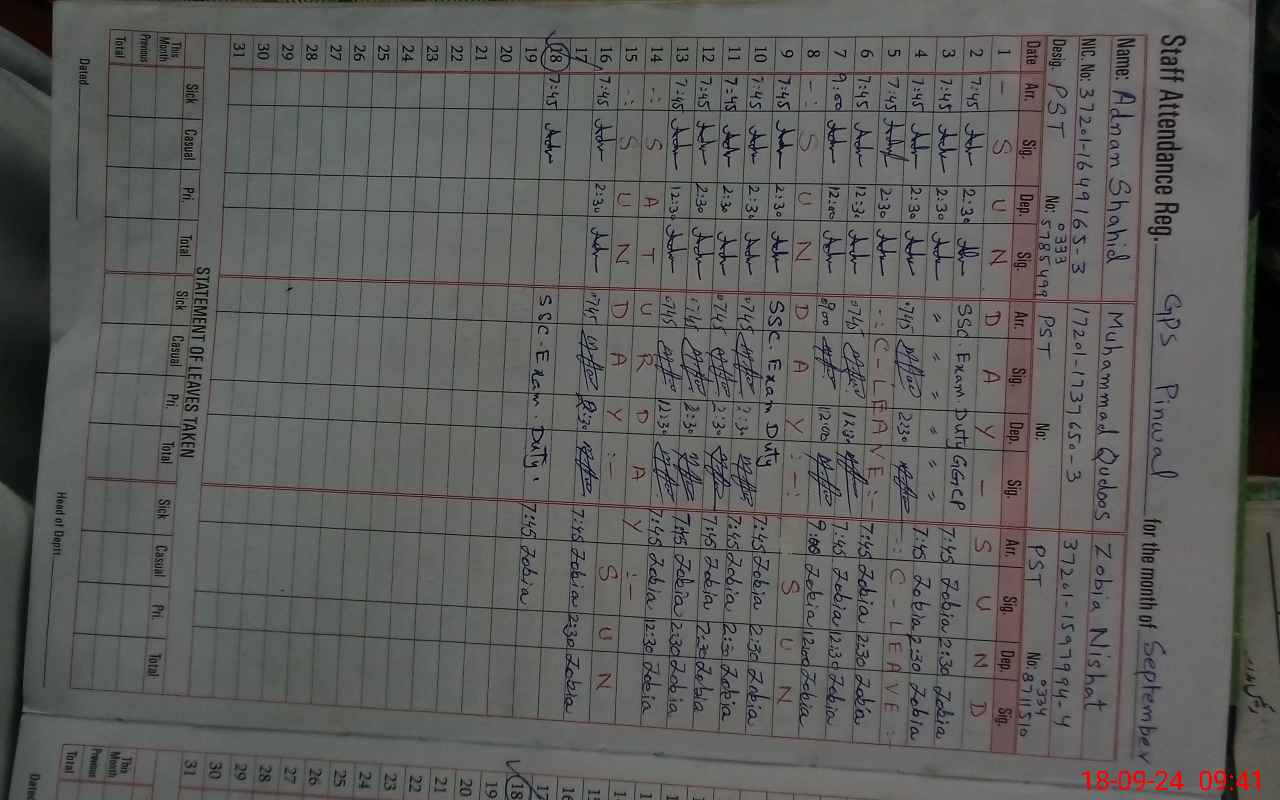 Staff Attendance Reg. GPS Pinwal for the month of September
Name: Adnan Shahid Muhammad Qudoos Zobia Nishat
NIC. No: 37201-1649165-3 17201-1737650-3 37201-1597994-4
Desig. PST No: 0333 5785499 PST No: PST No: 0334 8711510
Date Arr. Sig. Dep. Sig. Arr. Sig. Dep. Sig. Arr. Sig. Dep. Sig.
1 - S U N D A Y - S U N D
2 7:45 Adn 2:30 Adn SSC. Exam. Duty GGCP 7:45 Zobia 2:30 Zobia
3 7:45 Adn 2:30 Adn " " " " " 7:45 Zobia 2:30 Zobia
4 7:45 Adn 2:30 Adn 0745 2:30 -: C-LEAVE:-
5 7:45 Adn 2:30 Adn -: C-LEAVE:- 7:45 Zobia 2:30 Zobia
6 7:45 Adn 12:30 Adn 0745 12:30 7:45 Zobia 12:30 Zobia
7 9:00 Adn 12:00 Adn 0900 12:00 9:00 Zobia 12:00 Zobia
8 -: S U N D A Y :-: S U N
9 7:45 Adn 2:30 Adn SSC. Exam Duty 7:45 Zobia 2:30 Zobia
10 7:45 Adn 2:30 Adn 0745 2:30 7:45 Zobia 2:30 Zobia
11 7:45 Adn 2:30 Adn 0745 2:30 7:45 Zobia 2:30 Zobia
12 7:45 Adn 2:30 Adn 0745 2:30 7:45 Zobia 2:30 Zobia
13 7:45 Adn 12:30 Adn 0745 12:30 7:45 Zobia 12:30 Zobia
14 -: S A T U R D A Y :-
15 -: S U N D A Y :- S U N
16 7:45 Adn 2:30 Adn 0745 2:30 7:45 Zobia 2:30 Zobia
17
18 7:45 Adn SSC-Exam-Duty. 7:45 Zobia
19
20
21
22
23
24
25
26
27
28
29
30
31
STATEMENT OF LEAVES TAKEN
Sick Casual Pri. Total Sick Casual Pri. Total Sick Casual Pri. Total
This Month
Previous
Total
Dated Head of Deptt
16
17
18
19
20
21
22
23
24
25
26
27
28
29
30
31
This Month
Previous
Total
Dated
18-09-24 09:41